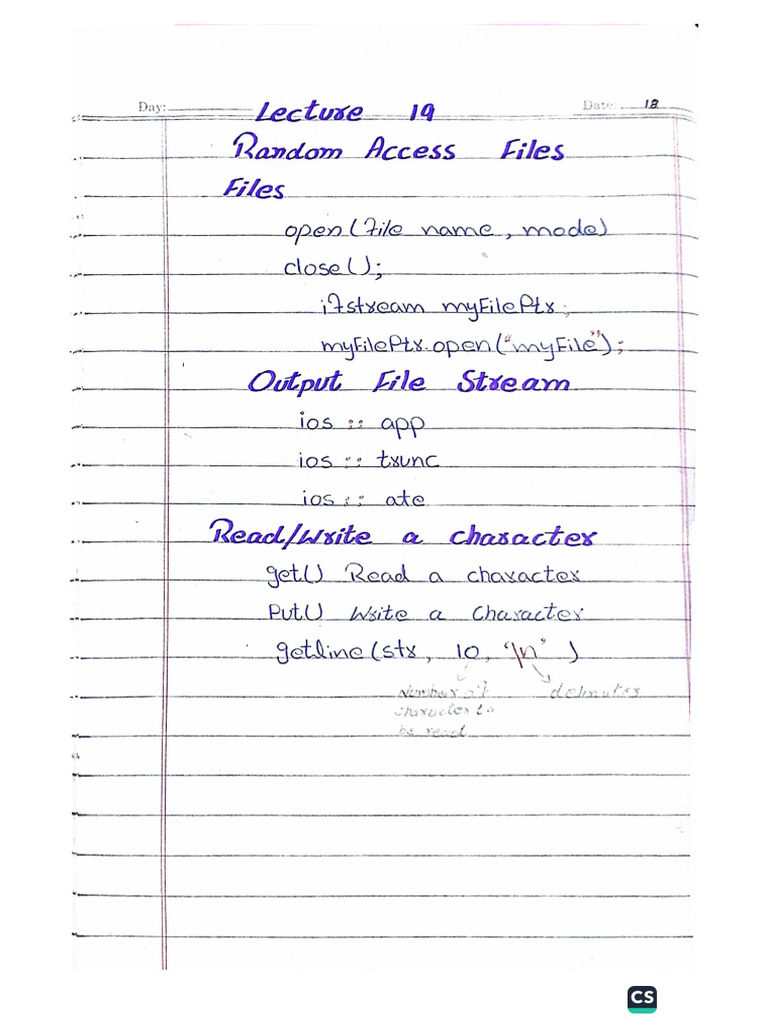 Day: Lecture 19 Date: 18
Random Access Files
Files
open(file name, mode)
close();
ifstream myFilePtr;
myFilePtr.open("myFile");
Output File Stream
ios :: app
ios :: trunc
ios :: ate
Read/Write a character
get() Read a character
Put() Write a Character
getline(str, 10, '\n')
Number of delmiter
character to
be read
CS